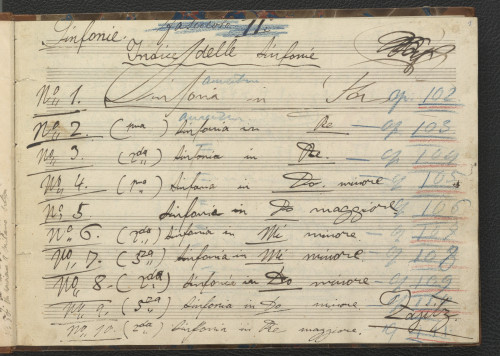 Sinfonie. 11.
Indice delle Sinfonie
No. 1. Sinfonia in op. 102
No. 2. (1ma) Sinfonia in Re op 103
No. 3. (2da) Sinfonia in Re. op. 104
No. 4. (1ma) Sinfonia in Do. minore op 105
No. 5 Sinfonia in Do maggiore 106
No. 6. (2da) Sinfonia in Mi minore
No. 7. (3za) Sinfonia in Mi minore 108
No. 8. (2da) Sinfonia in Do minore 109
No. 9. (3za) Sinfonia in Do minore
No. 10. (2da) Sinfonia in Re maggiore.